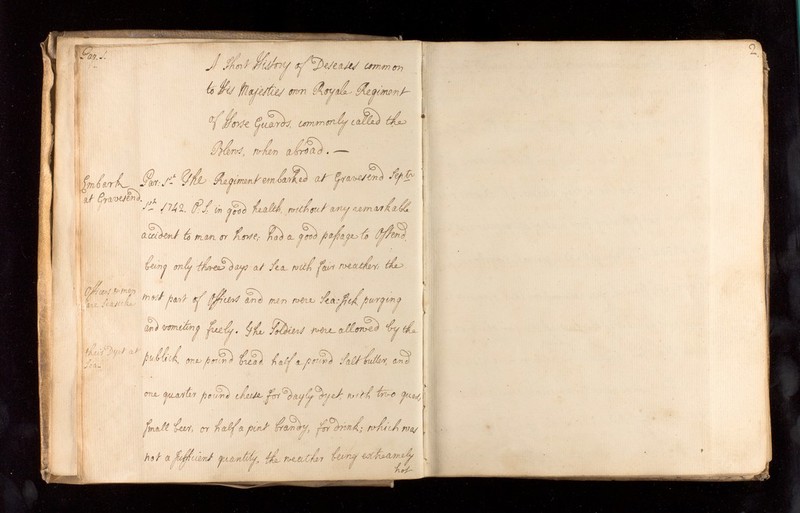 Par. 1.
2
A Short History of Deseases common
to His Majesties own Royale Regiment
of Horse Guards, commonly called the
Blews, when abroad. —
Embark
at Gravesend,
Par. 1st The Regiment embarked at Gravesend Septbr
1st 1742 O:S, in good health, without any remarkable
accident to man or horse; had a good passage to Ostend
being only three days at Sea with fair weather, the
Officers & men
are Seasick
most part of Officers and men were Sea-sick, purging
and vomiting freely. The Soldiers were allowed by the
their Dyet at
Sea
publick one pound bread half a pound Salt butter, and
one quarter pound cheese for dayly dyet, with two quarts
Small beer, or half a pint brandy, for drink; which was
not a sufficient quantity, the weather being extreamely
hot